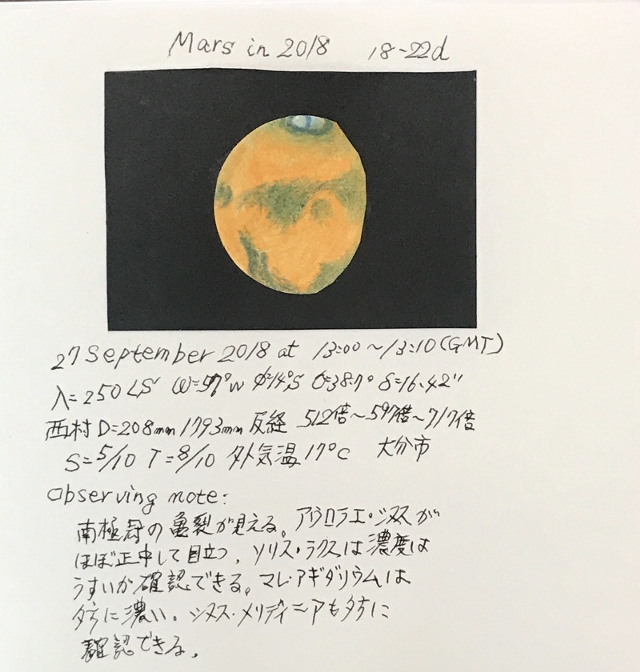 Mars in 2018 18-22d
27 September 2018 at 13:00~13:10(GMT)
λ=250LS ω=57°W φ=14°S δ=16.42"
西村D=208mm 1793mm 反経 512倍~597倍~717倍
S=5/10 T=8/10 外気温17°C 大分市
Observing note:
南極冠の亀裂が見える。アウロラエ・シヌスが
ほぼ正中して目立つ、ソリス・ラクスは濃度は
うすいが確認できる。マレ・アキダリウムは
夕方に濃い。シヌス・メリディニアも夕方に
確認できる。